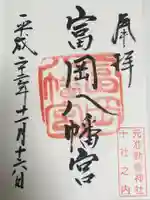 奉拝
元准勅祭神社
十社之内
富岡八幡宮
平成 年十一月十六日